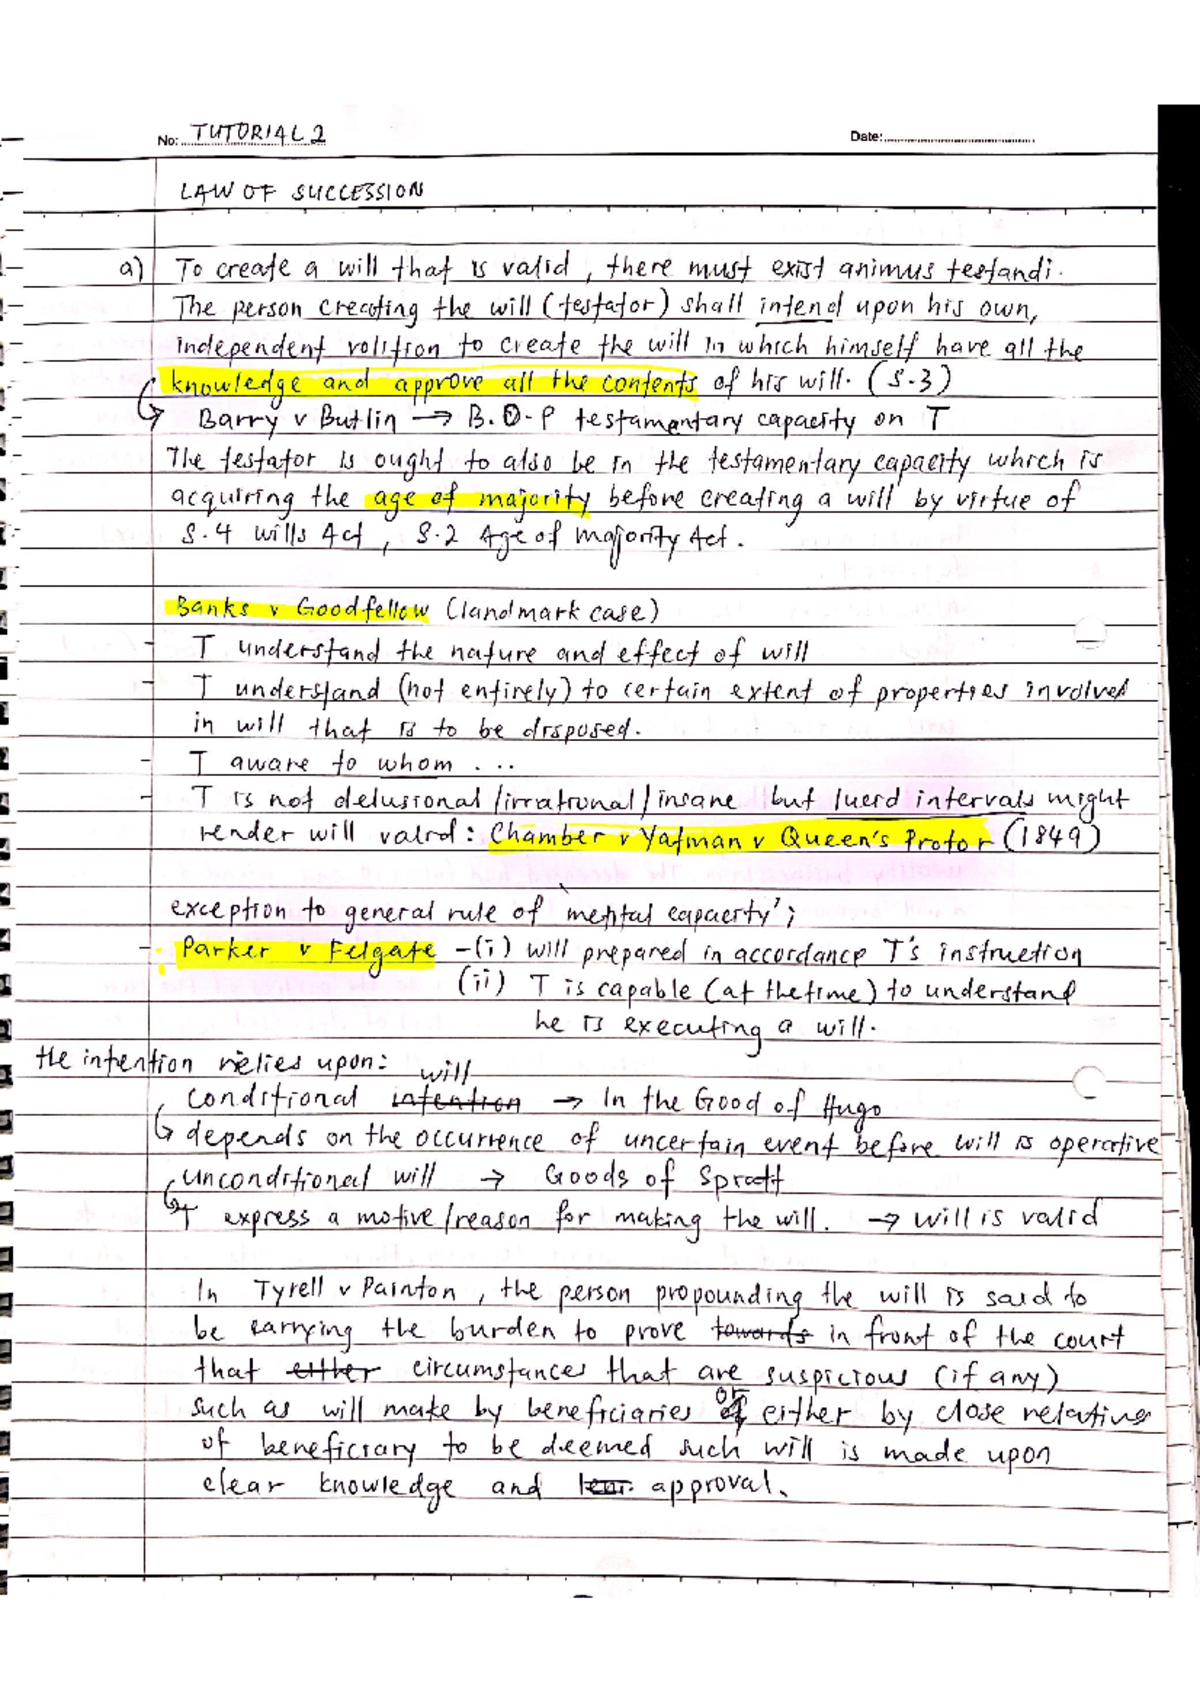 No: TUTORIAL 2 Date:
LAW OF SUCCESSION
a) To create a will that is valid, there must exist animus testandi.
The person creating the will (testator) shall intend upon his own,
independent volition to create the will in which himself have all the
knowledge and approve all the contents of his will. (S.3)
Barry v Butlin → B.O.P testamentary capacity on T
The testator is ought to also be in the testamentary capacity which is
acquiring the age of majority before creating a will by virtue of
S.4 wills Act, S.2 Age of majority Act.
Banks v Goodfellow (landmark case)
- T understand the nature and effect of will
- T understand (not entirely) to certain extent of properties involved
in will that is to be disposed.
- T aware to whom ...
- T is not delusional/irrational/insane but lucid intervals might
render will valid: Chamber v Yatman v Queen's Protor (1849)
exception to general rule of 'mental capacity';
- Parker v Felgate -(i) will prepared in accordance T's instruction
(ii) T is capable (at the time) to understand
he is executing a will.
the intention relies upon:
conditional intention will → In the Good of Hugo
↳ depends on the occurrence of uncertain event before will is operative
unconditional will → Goods of Spratt
↳ T express a motive/reason for making the will. → will is valid
In Tyrell v Painton, the person propounding the will is said to
be carrying the burden to prove towards in front of the court
that either circumstances that are suspicious (if any)
such as will make by beneficiaries or either by close relative
of beneficiary to be deemed such will is made upon
clear knowledge and approval.